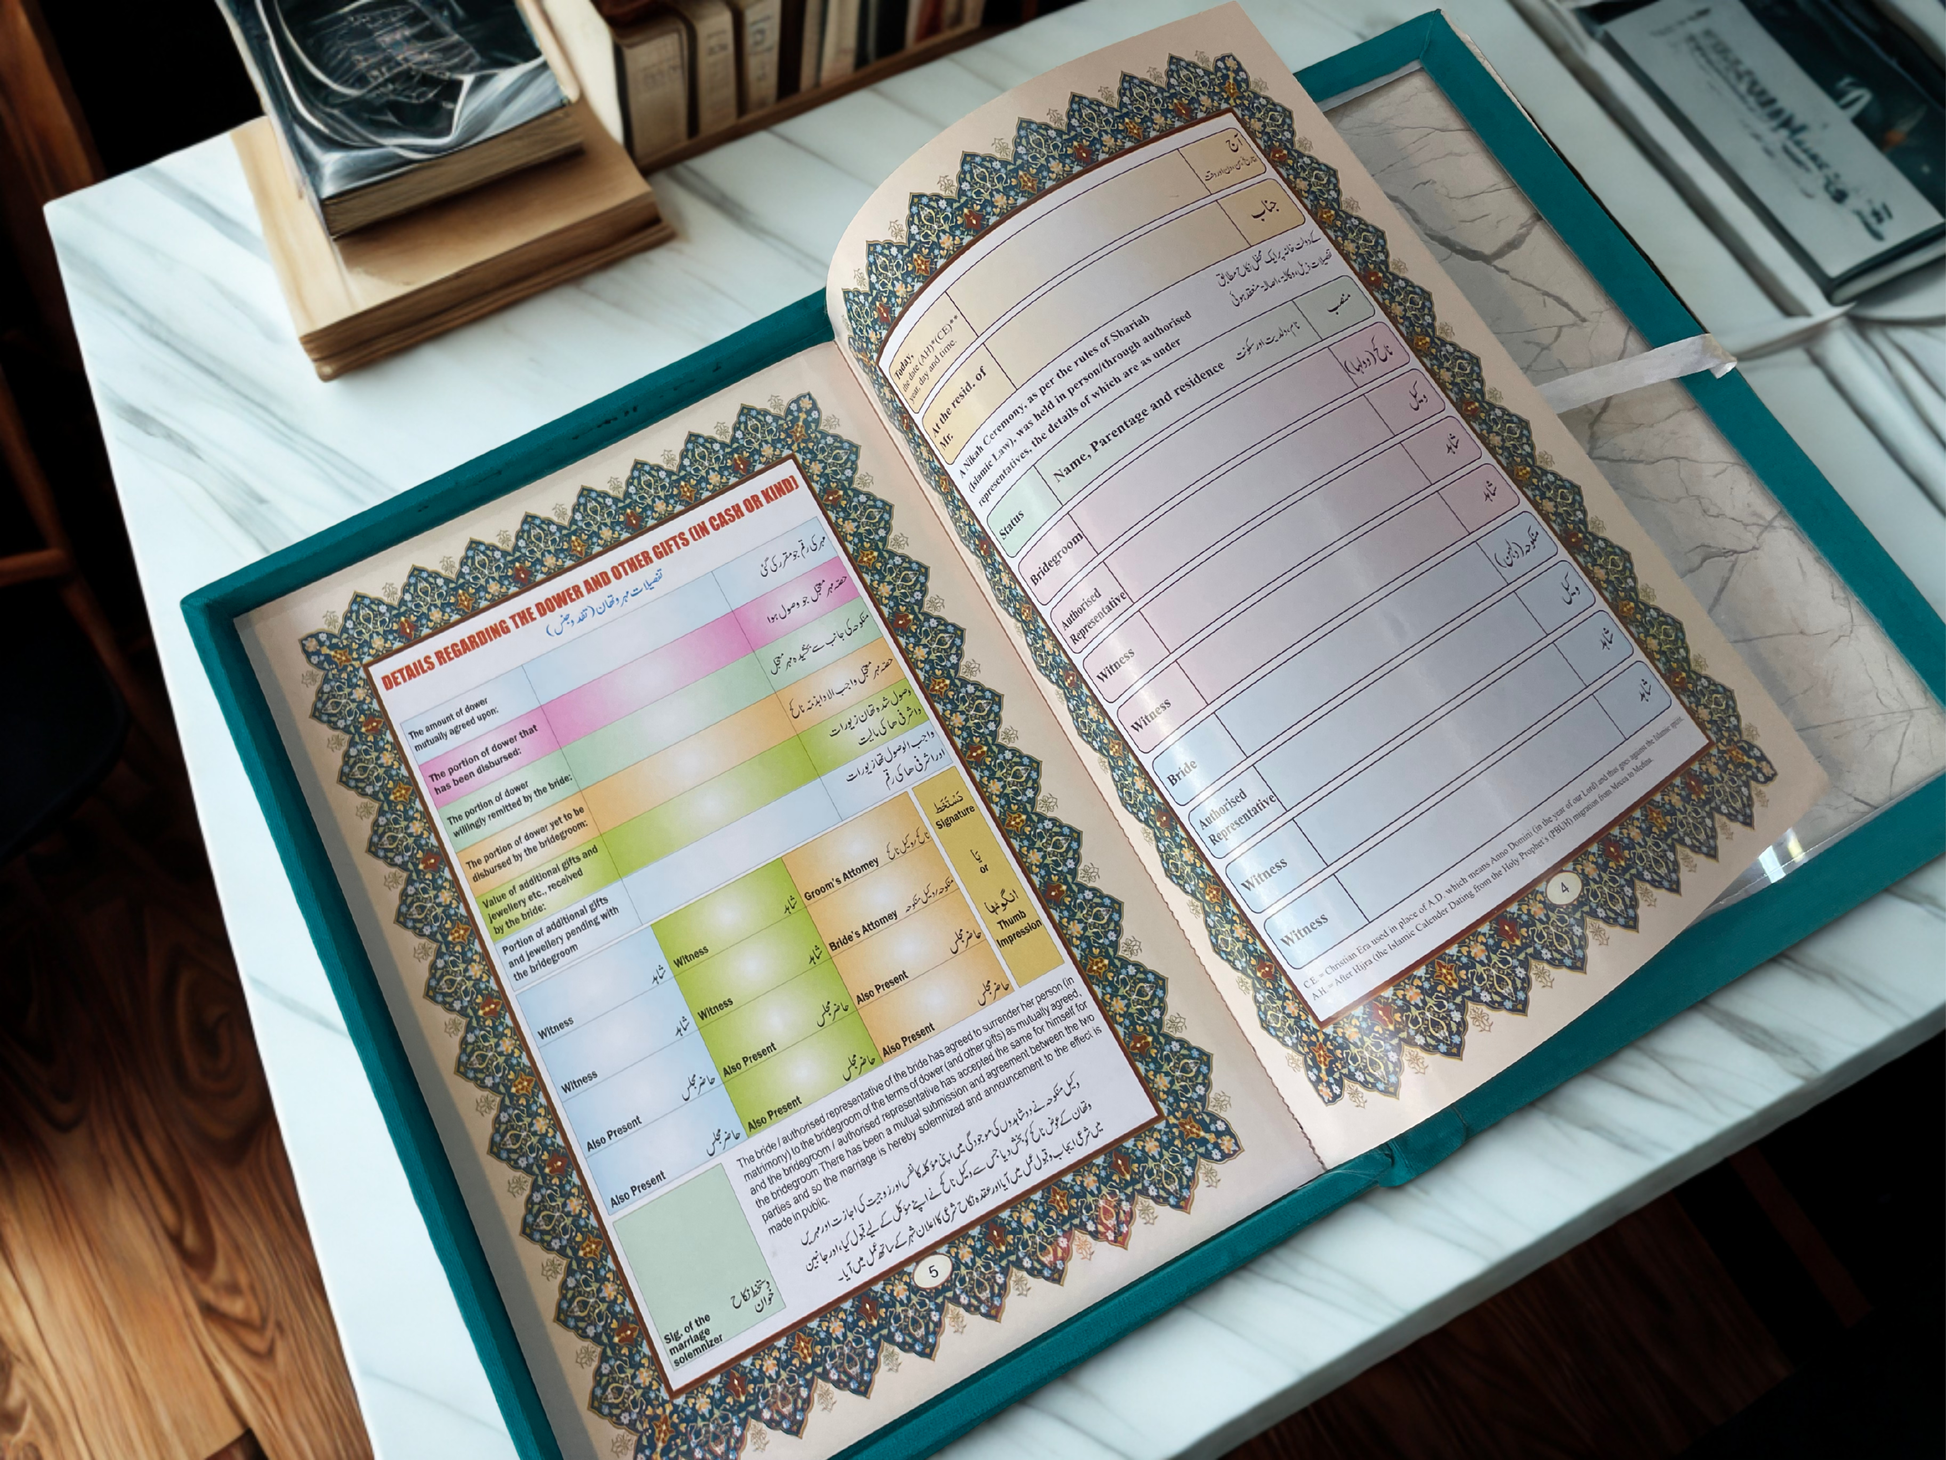 DETAILS REGARDING THE DOWER AND OTHER GIFTS (IN CASH OR KIND)
تفصیلات مہر و تھان (نقد و جنس)
The amount of dower
mutually agreed upon:
مہر کی رقم جو مقرر کی گئی
The portion of dower that
has been disbursed:
حصّہ مہر معجل جو وصول ہوا
The portion of dower
willingly remitted by the bride:
منکوحہ کی جانب سے بخشیدہ مہر معجل
The portion of dower yet to be
disbursed by the bridegroom:
حصّہ مہر معجل واجب الادا بذمّہ ناکح
Value of additional gifts and
jewellery etc., received
by the bride:
وصول شدہ تھان زیورات
واشرفی ھا کی مالیت
Portion of additional gifts
and jewellery pending with
the bridegroom
واجب الوصول تھاز یورات
اور اشرفی ھا کی رقم
Witness
شاہد
Witness
شاہد
Groom's Attorney
ناکح / وکیل ناکح
دَستَخَط
Signature
یَا
or
انگوٹھا
Thumb
Impression
Witness
شاہد
Witness
شاہد
Bride's Attorney
منکوحہ / وکیل منکوحہ
Also Present
حاضر مجلس
Also Present
حاضر مجلس
Also Present
حاضر مجلس
Also Present
حاضر مجلس
Also Present
حاضر مجلس
Also Present
حاضر مجلس
The bride / authorised representative of the bride has agreed to surrender her person (in
matrimony) to the bridegroom of the terms of dower (and other gifts) as mutually agreed,
and the bridegroom / authorised representative has accepted the same for himself for
the bridegroom There has been a mutual submission and agreement between the two
parties and so the marriage is hereby solemnized and announcement to the effect is
made in public.
وکیل منکوحہ نے دو شاہدوں کی موجودگی میں اپنی موکلہ کا نفس اور زوجیت کی اجازت اور مہر میں
وتھان کے عوض ناکح کو بخش دیا جسے وکیل ناکح نے اپنے موکل کے لیے قبول کیا، اور جانبین
میں شرعی ایجاب و قبول عمل میں آیا اور عقد نکاح شرعی کا اعلان شہر کے ساتھ عمل میں آیا۔
Sig. of the
marriage
solemnizer
دستخط نکاح
خوان
5
Today,
the date (AH)*(CE)**
year, day and time.
آج
At the resid. of
Mr.
جناب
A Nikah Ceremony, as per the rules of Shariah
(Islamic Law), was held in person/through authorised
representatives, the details of which are as under
کے دولت خانہ پر ایک محفل نکاح مطابق
تفصیلات ذیل، وکالتہ، اصالتہ منعقد ہوئی
Status
Name, Parentage and residence
نام، ولدیت اور سکونت
منصب
Bridegroom
ناکح (دولہا)
Authorised
Representative
وکیل
Witness
شاہد
Witness
شاہد
Bride
منکوحہ (دلہن)
Authorised
Representative
وکیل
Witness
شاہد
Witness
شاہد
C.E. = Christian Era used in place of A.D. which means Anno Domini (in the year of our Lord) and thus goes against the Islamic spirit.
A.H. = After Hijra (the Islamic Calender Dating from the Holy Prophet's (PBUH) migration from Mecca to Medina.
4